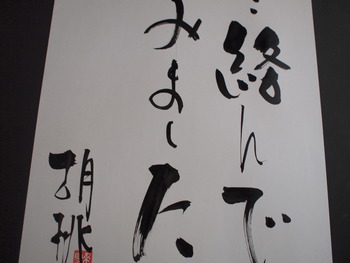 絡んで
みました
胡桃